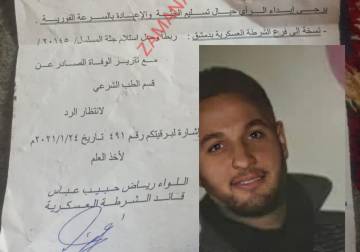 يرجى إبداء الرأي حيال تسليم الجثة والإعادة بالسرعة الفورية .
- نسخة إلى فرع الشرطة العسكرية بدمشق : ربطاً وصل استلام جثة المتسلسل /٢٠١٤٥/
مع تقرير الوفاة الصادر عن
قسم الطب الشرعي
لانتظار الرد
إشارة لبرقيتكم رقم ٤٩١ تاريخ ٢٠٢١/١/٢٤م
لأخذ العلم
اللواء رياض حبيب عباس
قائد الشرطة العسكرية
ZAMAN